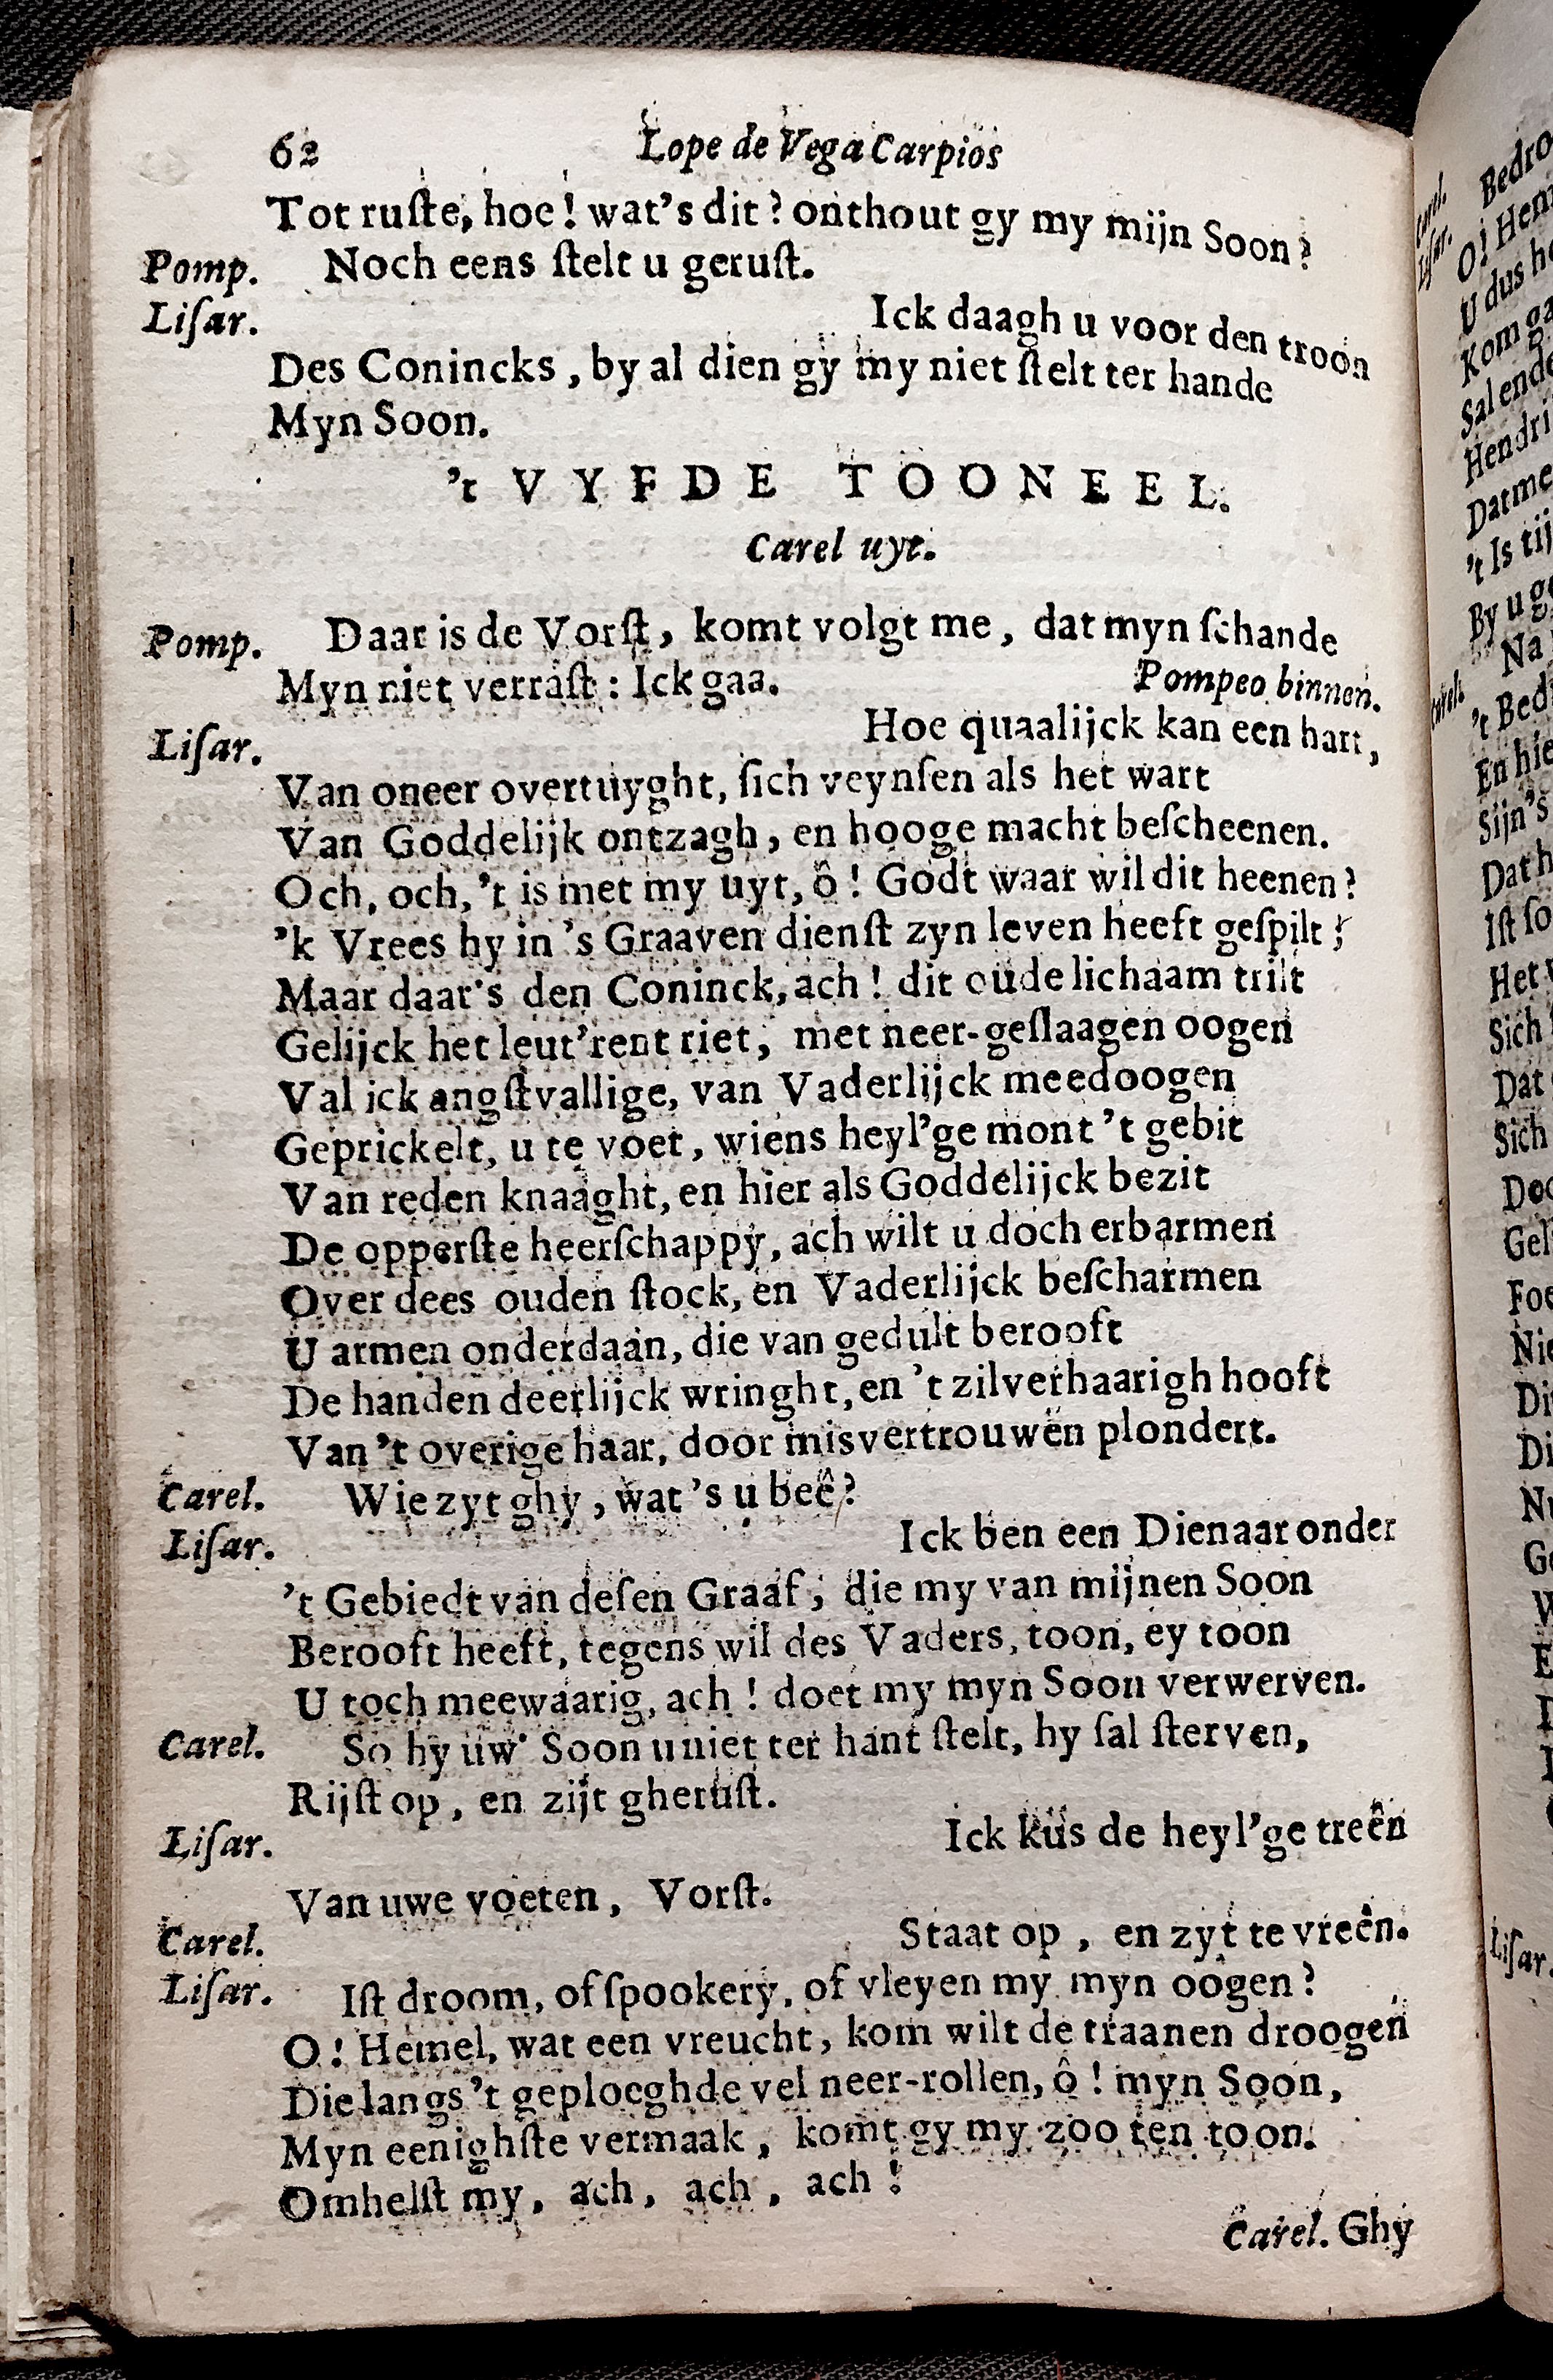 62 Lope de Vega Carpios
Tot ruſte, hoe! wat's dit? onthout gy my mijn Soon?
Pomp. Noch eens ſtelt u geruſt.
Liſar. Ick daagh u voor den troon
Des Conincks, by al dien gy my niet ſtelt ter hande
Myn Soon.
't VYFDE TOONEEL.
Carel uyt.
Pomp. Daar is de Vorſt, komt volgt me, dat myn ſchande
Myn niet verraſt: Ick gaa. Pompeo binnen.
Liſar. Hoe quaalijck kan een hart,
Van oneer overtuyght, ſich veynſen als het wart
Van Goddelijk ontzagh, en hooge macht beſcheenen.
Och, och, 't is met my uyt, ô! Godt waar wil dit heenen?
'k Vrees hy in 's Graaven dienſt zyn leven heeft geſpilt;
Maar daar's den Coninck, ach! dit oude lichaam trilt
Gelijck het leut'rent riet, met neer-geſlaagen oogen
Val ick angſtvallige, van Vaderlijck meedoogen
Geprickelt, u te voet, wiens heyl'ge mont 't gebit
Van reden knaaght, en hier als Goddelijck bezit
De opperſte heerſchappy, ach wilt u doch erbarmen
Over dees ouden ſtock, en Vaderlijck beſcharmen
U armen onderdaan, die van gedult berooft
De handen deerlijck wringht, en 't zilverhaarigh hooft
Van 't overige haar, door misvertrouwen plondert.
Carel. Wie zyt ghy, wat 's u beê?
Liſar. Ick ben een Dienaar onder
't Gebiedt van deſen Graaf, die my van mijnen Soon
Berooft heeft, tegens wil des Vaders, toon, ey toon
U toch meewaarig, ach! doet my myn Soon verwerven.
Carel. So hy uw' Soon u niet ter hant ſtelt, hy ſal ſterven,
Rijſt op, en zijt gheruſt.
Liſar. Ick kus de heyl'ge treên
Van uwe voeten, Vorſt.
Carel. Staat op, en zyt te vreên.
Liſar. Iſt droom, of ſpookery, of vleyen my myn oogen?
O! Hemel, wat een vreucht, kom wilt de traanen droogen
Die langs 't geploeghde vel neer-rollen, ô! myn Soon,
Myn eenighſte vermaak, komt gy my zoo ten toon.
Omhelſt my, ach, ach, ach!
Carel. Ghy